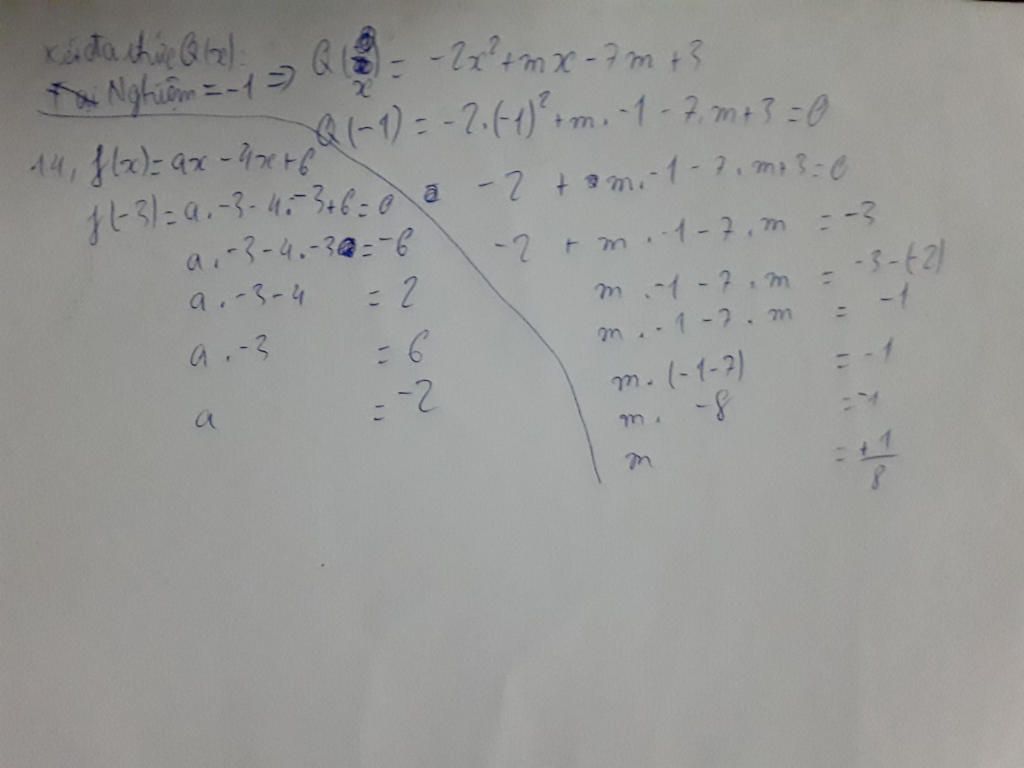 Xét đa thức Q(x):
Nghiệm = -1 => Q(x) = -2x² + mx - 7m + 3
Q(-1) = -2.(-1)² + m. -1 - 7. m + 3 = 0
-2 + m. -1 - 7. m + 3 = 0
-2 + m. -1 - 7. m = -3
m. -1 - 7. m = -3 - (-2)
m. -1 - 7. m = -1
m. (-1 - 7) = -1
m. -8 = -1
m = +1/8
14, f(x) = ax - 4x + 6
f(-3) = a. -3 - 4. -3 + 6 = 0
a. -3 - 4. -3 = -6
a. -3 - 4 = 2
a. -3 = 6
a = -2